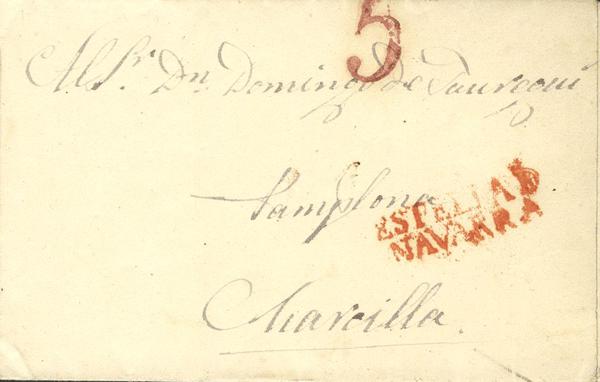 5
Al Sr. Dn. Domingo de Jauregui
Pamplona
ESTELLA
NAVARRA
Marcilla.